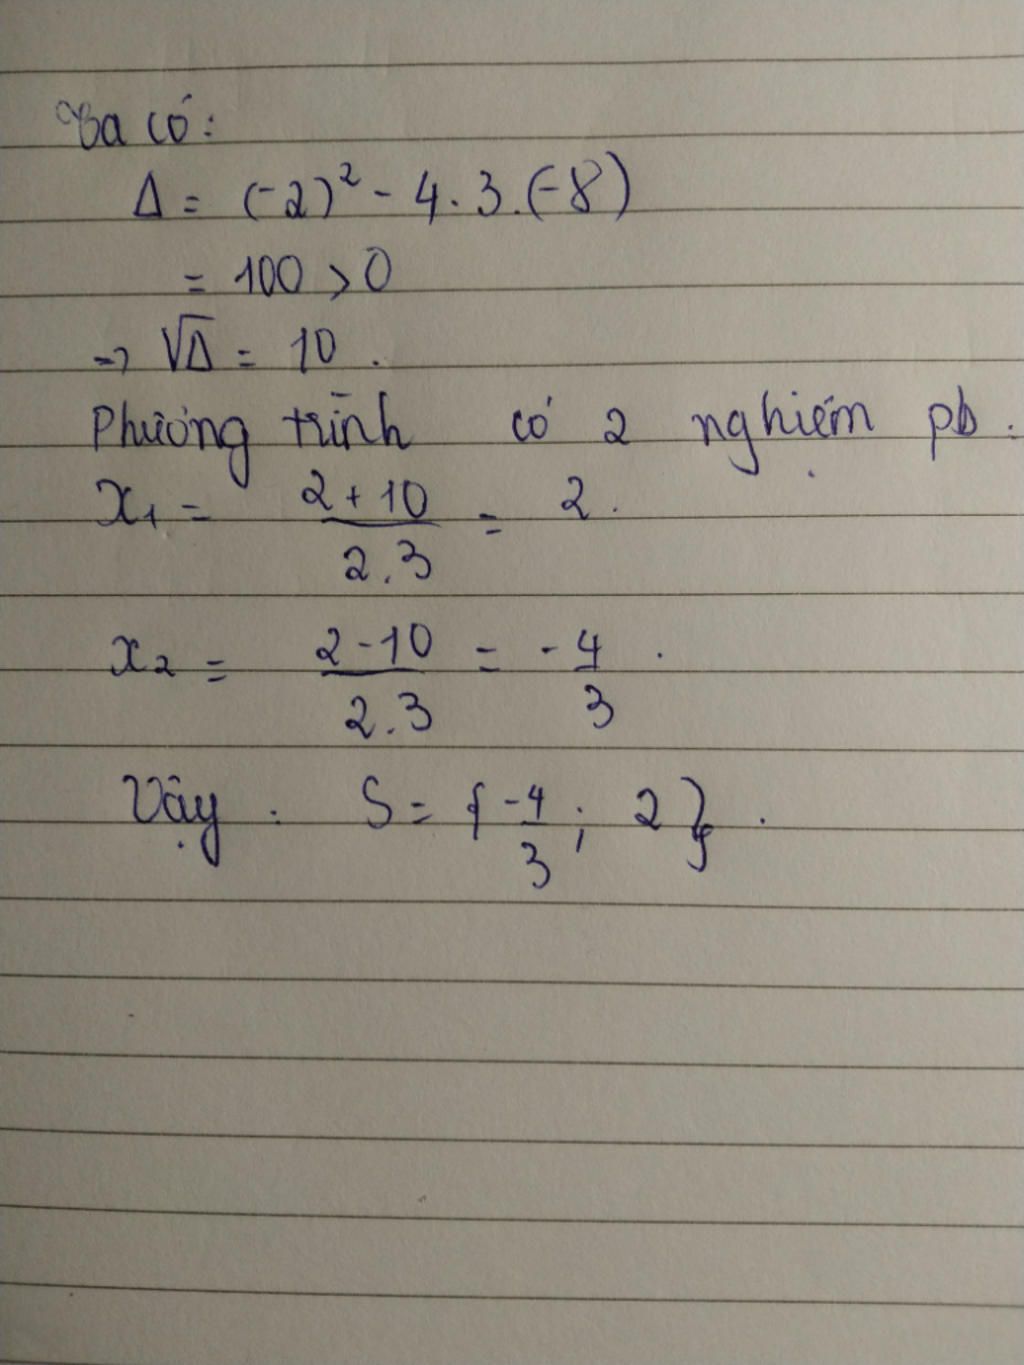 Ta có:
Δ = (-2)² - 4.3.(-8)
= 100 > 0
=> √Δ = 10.
Phương trình có 2 nghiệm pb.
x₁ = (2+10)/(2.3) = 2.
x₂ = (2-10)/(2.3) = -4/3.
Vậy: S = {-4/3; 2}.